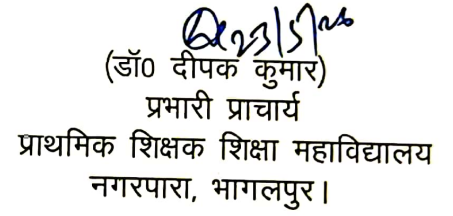 23/5/26
(डॉ0 दीपक कुमार)
प्रभारी प्राचार्य
प्राथमिक शिक्षक शिक्षा महाविद्यालय
नगरपारा, भागलपुर।